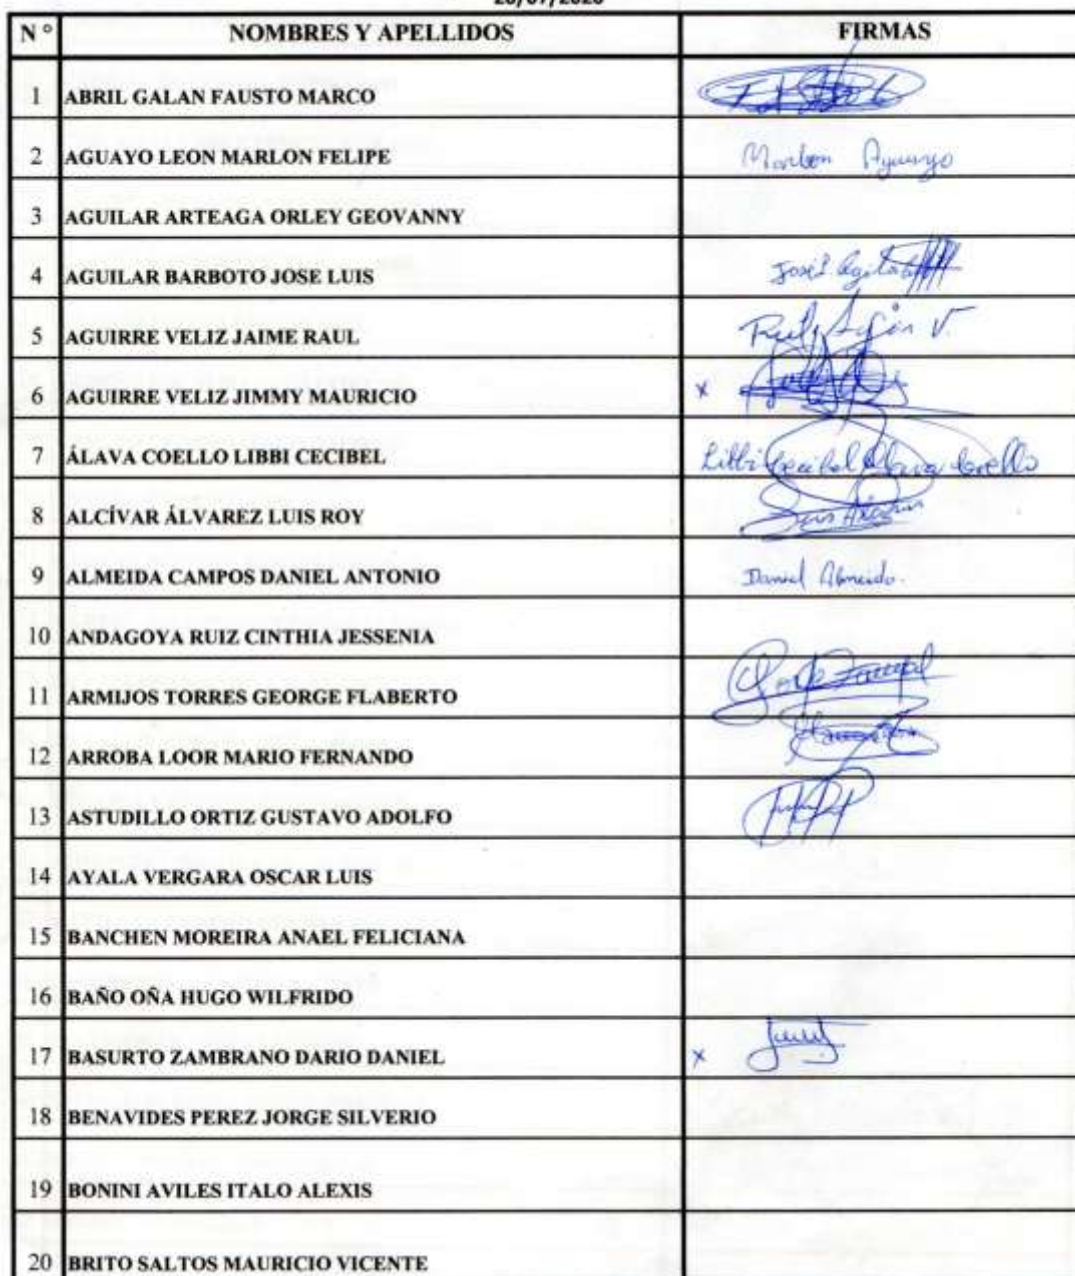 N ° NOMBRES Y APELLIDOS FIRMAS
1 ABRIL GALAN FAUSTO MARCO
2 AGUAYO LEON MARLON FELIPE Marlon Aguayo
3 AGUILAR ARTEAGA ORLEY GEOVANNY
4 AGUILAR BARBOTO JOSE LUIS
5 AGUIRRE VELIZ JAIME RAUL
6 AGUIRRE VELIZ JIMMY MAURICIO x
7 ÁLAVA COELLO LIBBI CECIBEL Libbi Cecibel Alava Coello
8 ALCÍVAR ÁLVAREZ LUIS ROY
9 ALMEIDA CAMPOS DANIEL ANTONIO Daniel Almeida.
10 ANDAGOYA RUIZ CINTHIA JESSENIA
11 ARMIJOS TORRES GEORGE FLABERTO
12 ARROBA LOOR MARIO FERNANDO
13 ASTUDILLO ORTIZ GUSTAVO ADOLFO
14 AYALA VERGARA OSCAR LUIS
15 BANCHEN MOREIRA ANAEL FELICIANA
16 BAÑO OÑA HUGO WILFRIDO
17 BASURTO ZAMBRANO DARIO DANIEL x
18 BENAVIDES PEREZ JORGE SILVERIO
19 BONINI AVILES ITALO ALEXIS
20 BRITO SALTOS MAURICIO VICENTE